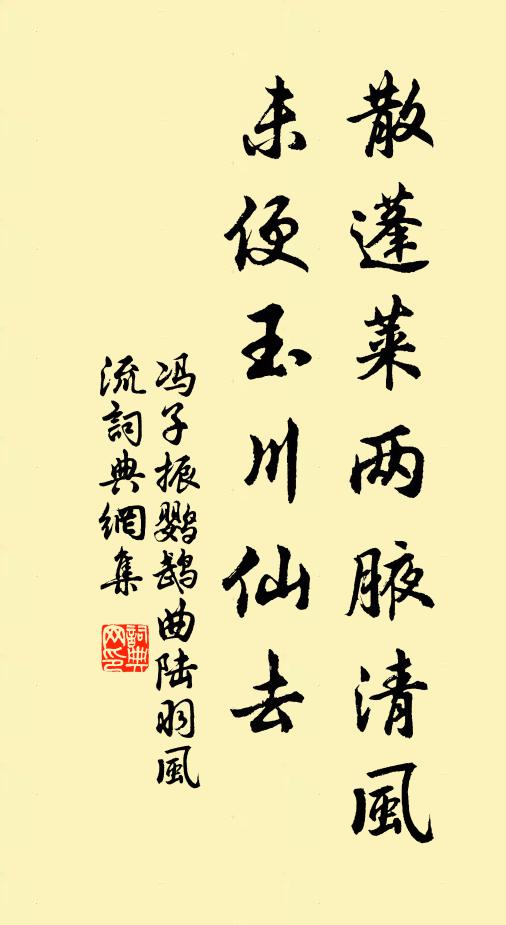 散蓬莱两腋清風
未便玉川仙去
冯子振鹦鹉曲陆羽風
流詞典網集
詞典
网印